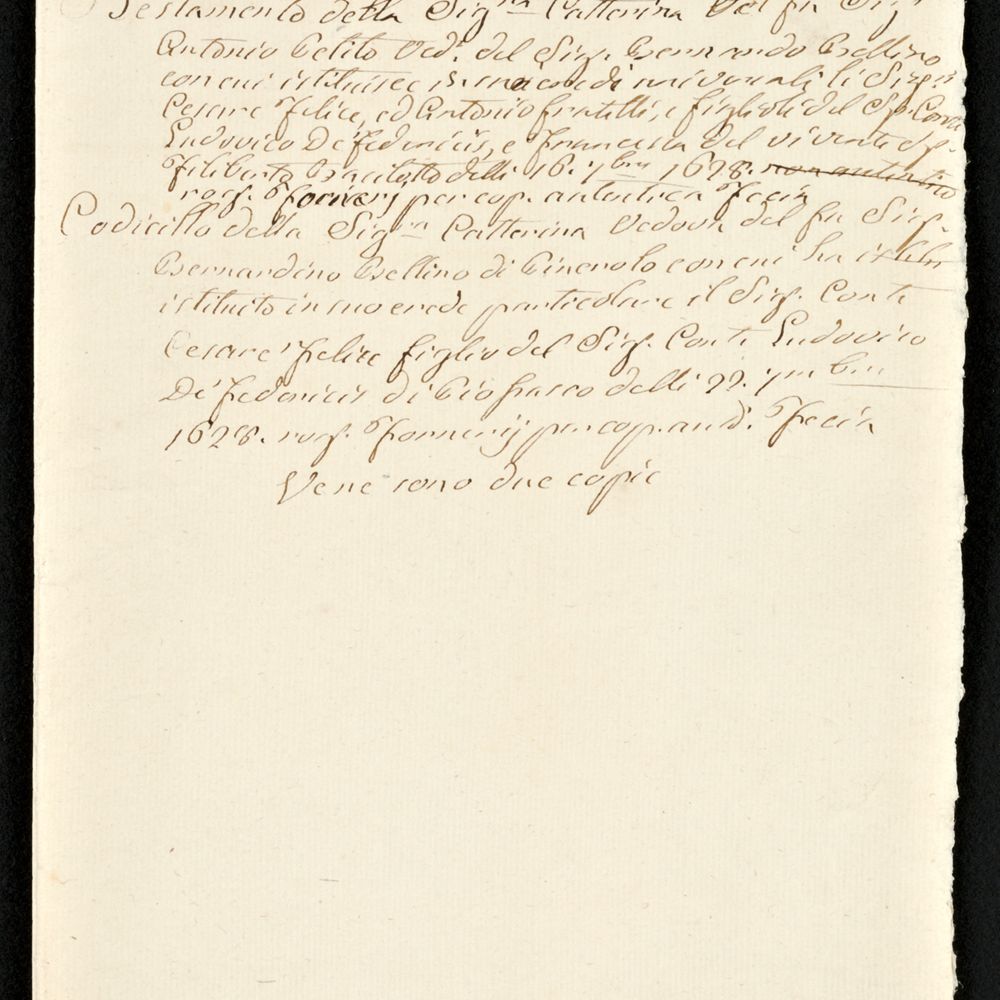 Testamento della Sig.ra Catterina del fu Sig.r
Antonio Petito Ved.a del Sig.r Bernardo Bellino
con cui istituisce in suoi eredi universali li Sig.ri
Cesare Felice, ed Antonio fratelli, e figlioli del Sig.r Conte
Ludovico De Federicis, e Francesca del vivente Sig.r
Filiberto delli 16. 7bre 1628. non autentico
rog.o Fornerj per cop. autentica Fecia
Codicillo della Sig.ra Catterina Vedova del fu Sig.r
Bernardino Bellino di Pinerolo con cui ha
istituito in suo erede particolare il Sig.r Conte
Cesare Felice figlio del Sig.r Conte Ludovico
De Federicis di Piofrasco delli 22. 7mbre
1628. rog.o Fornerij per cop. aut. Fecia
Vene sono due copie